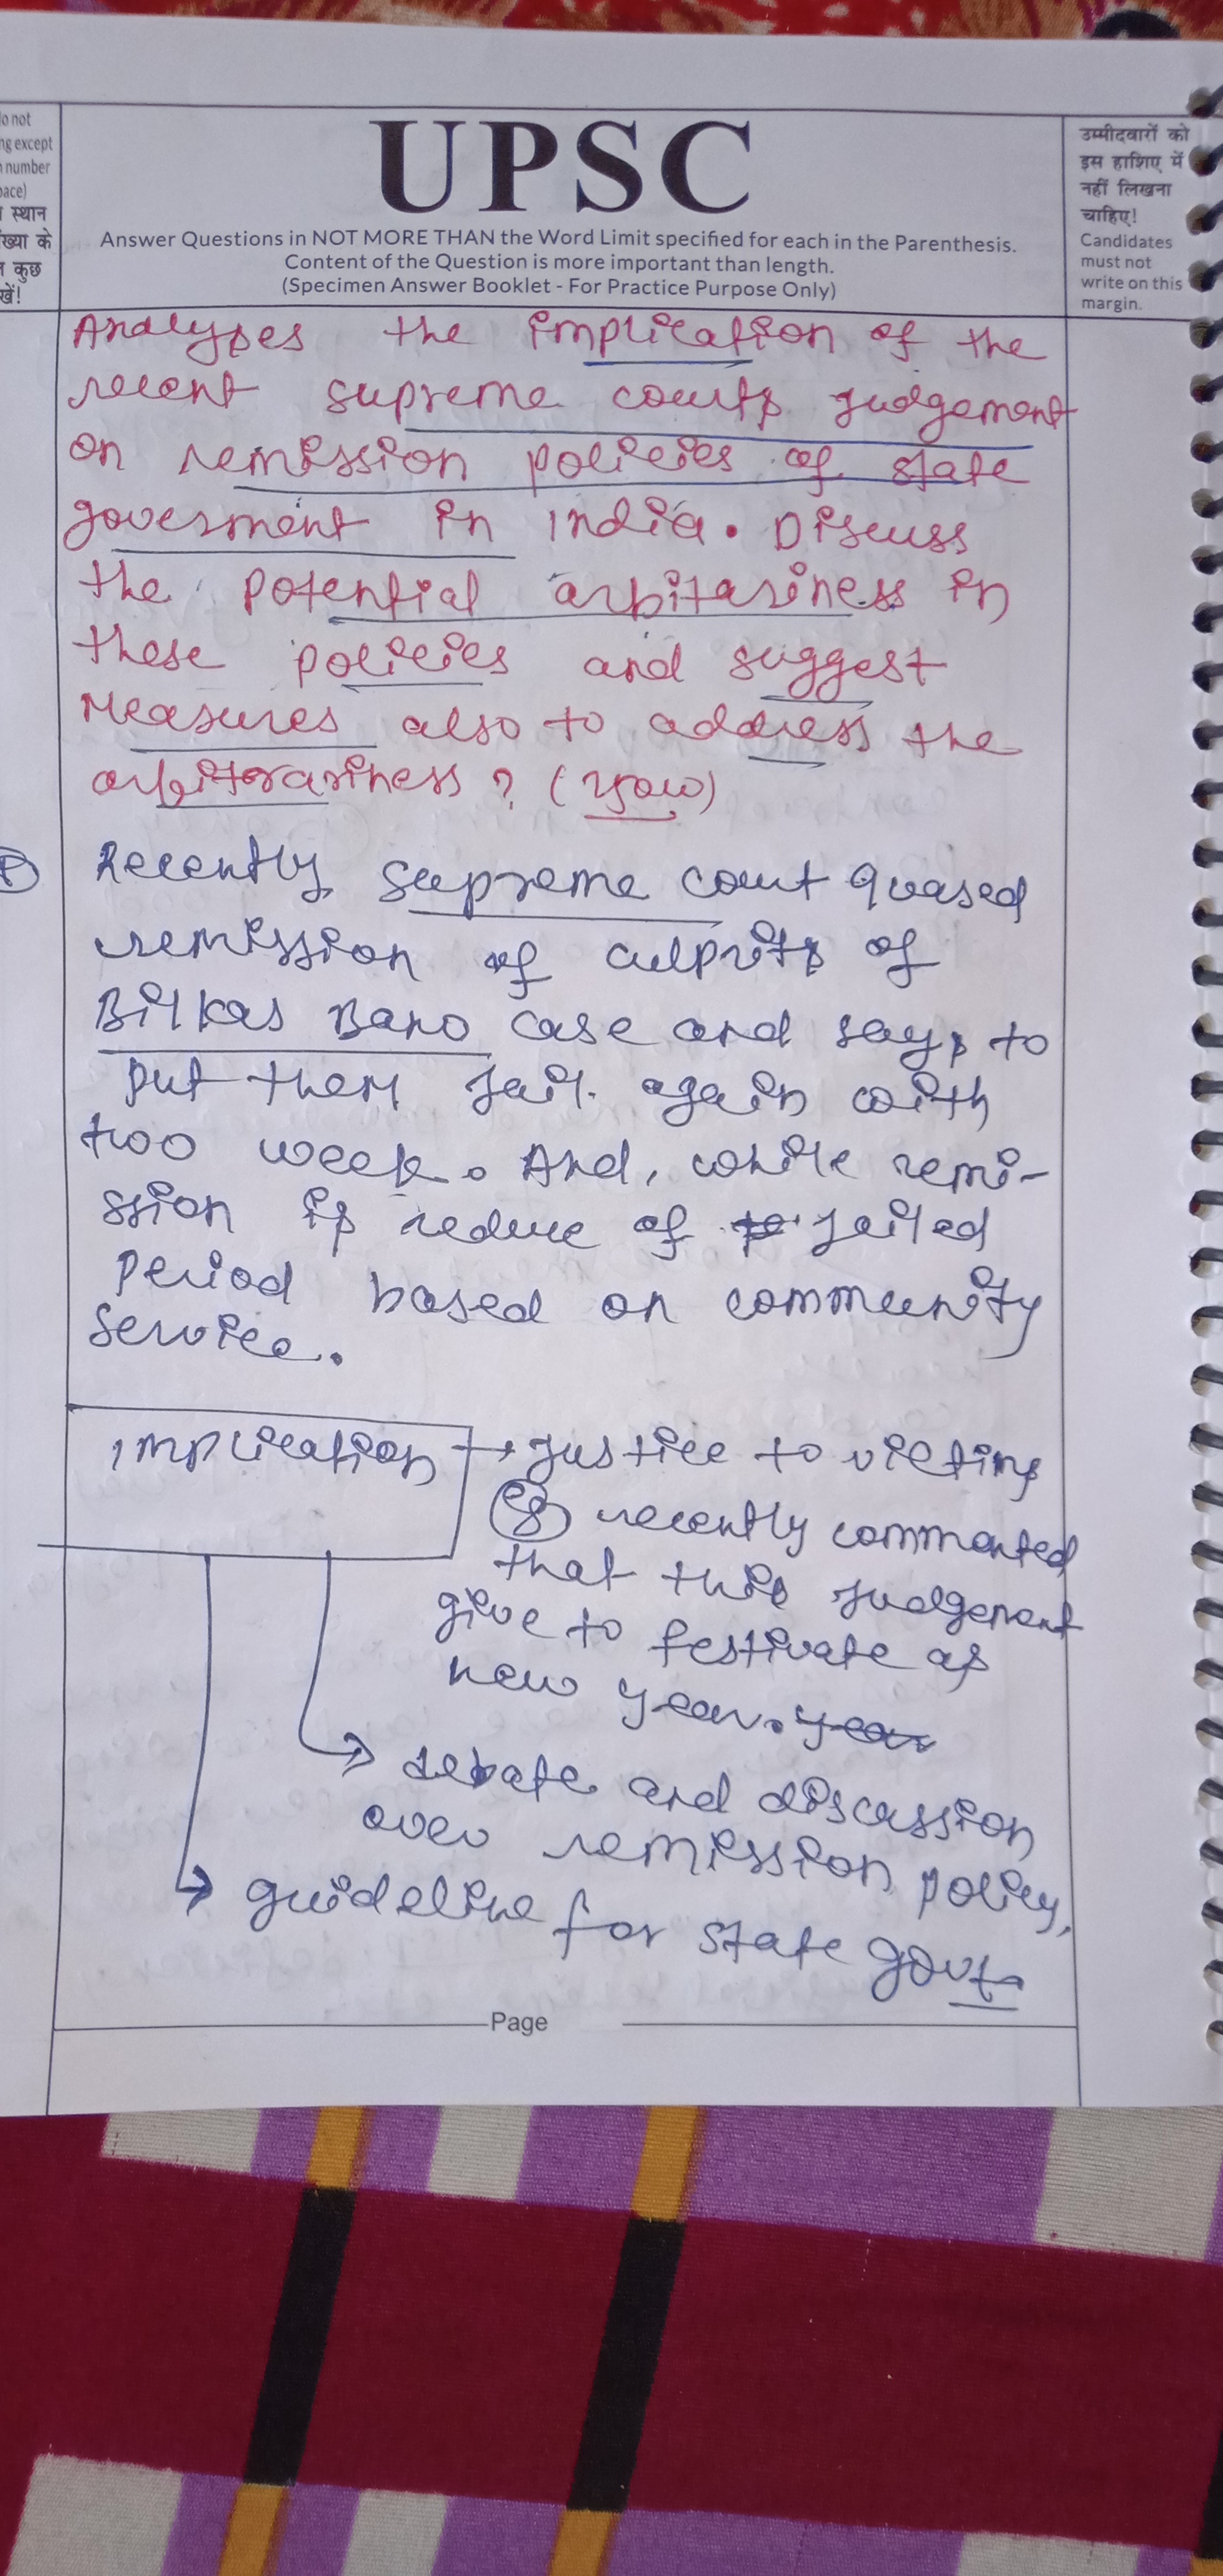 do not
ng except
number
pace)
स्थान
ख्या के
कुछ
खें!
UPSC
Answer Questions in NOT MORE THAN the Word Limit specified for each in the Parenthesis.
Content of the Question is more important than length.
(Specimen Answer Booklet - For Practice Purpose Only)
उम्मीदवारों को
इस हाशिए में
नहीं लिखना
चाहिए!
Candidates
must not
write on this
margin.
Analyses the implication of the
recent supreme courts judgement
on remission policies of state
goverment in India. Discuss
the potential arbitariness in
these policies and suggest
measures also to address the
arbitrariness ?
Recently supreme court quased
remission of culprits of
Bilkas Bano case and says to
put them jail again with
two week. And, while remi-
ssion is reduce of jailed
period based on community
service.
implication → justice to victims
eg recently commented
that this judgement
give to festivate as
new year. year
→ debate and discussion
over remission policy,
→ guideline for state govt.
Page